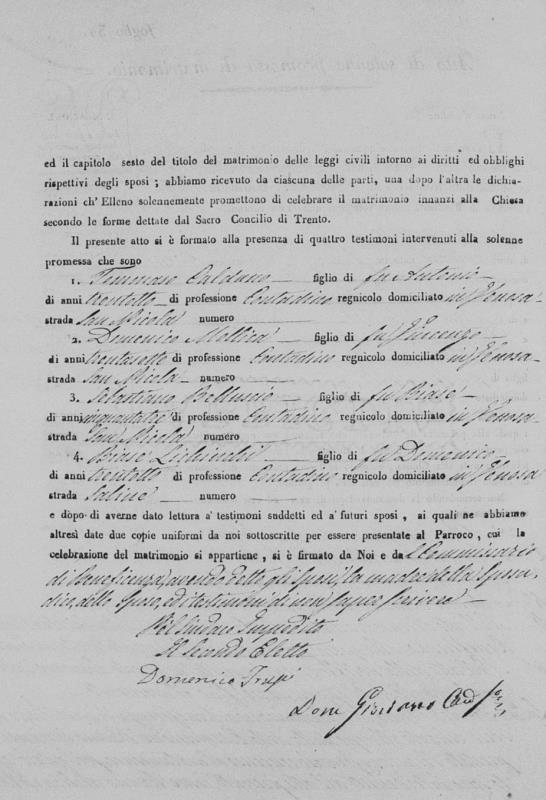 foglio
ed il capitolo sesto del titolo del matrimonio delle leggi civili intorno ai diritti ed obblighi
rispettivi degli sposi ; abbiamo ricevuto da ciascuna delle parti, una dopo l'altra le dichia-
razioni ch' Elleno solennemente promettono di celebrare il matrimonio innanzi alla Chiesa
secondo le forme dettate dal Sacro Concilio di Trento.
Il presente atto si è formato alla presenza di quattro testimoni intervenuti alla solenne
promessa che sono
1. Tommaso Caldano figlio di fu Antonio
di anni trentotto di professione Contadino regnicolo domiciliato in Venosa
strada San Nicola numero
2. Domenico figlio di fu Vincenzo
di anni trentasette di professione Contadino regnicolo domiciliato in Venosa
strada San Nicola numero
3. Sebastiano figlio di fu Biase
di anni cinquantatre di professione Contadino regnicolo domiciliato in Venosa
strada San Nicola numero
4. Biase figlio di fu Domenico
di anni trentotto di professione Contadino regnicolo domiciliato in Venosa
strada Saline numero
e dopo di averne dato lettura a' testimoni suddetti ed a' futuri sposi , ai quali ne abbiamo
altresì date due copie uniformi da noi sottoscritte per essere presentate al Parroco , cui la
celebrazione del matrimonio si appartiene, si è firmato da Noi e da
di Beneficenza, avendo detto gli Sposi, la madre della Sposa
dello Sposo, ed i testimoni di non sapere scrivere
Pel Sindaco Impedito
Il Secondo Eletto
Domenico